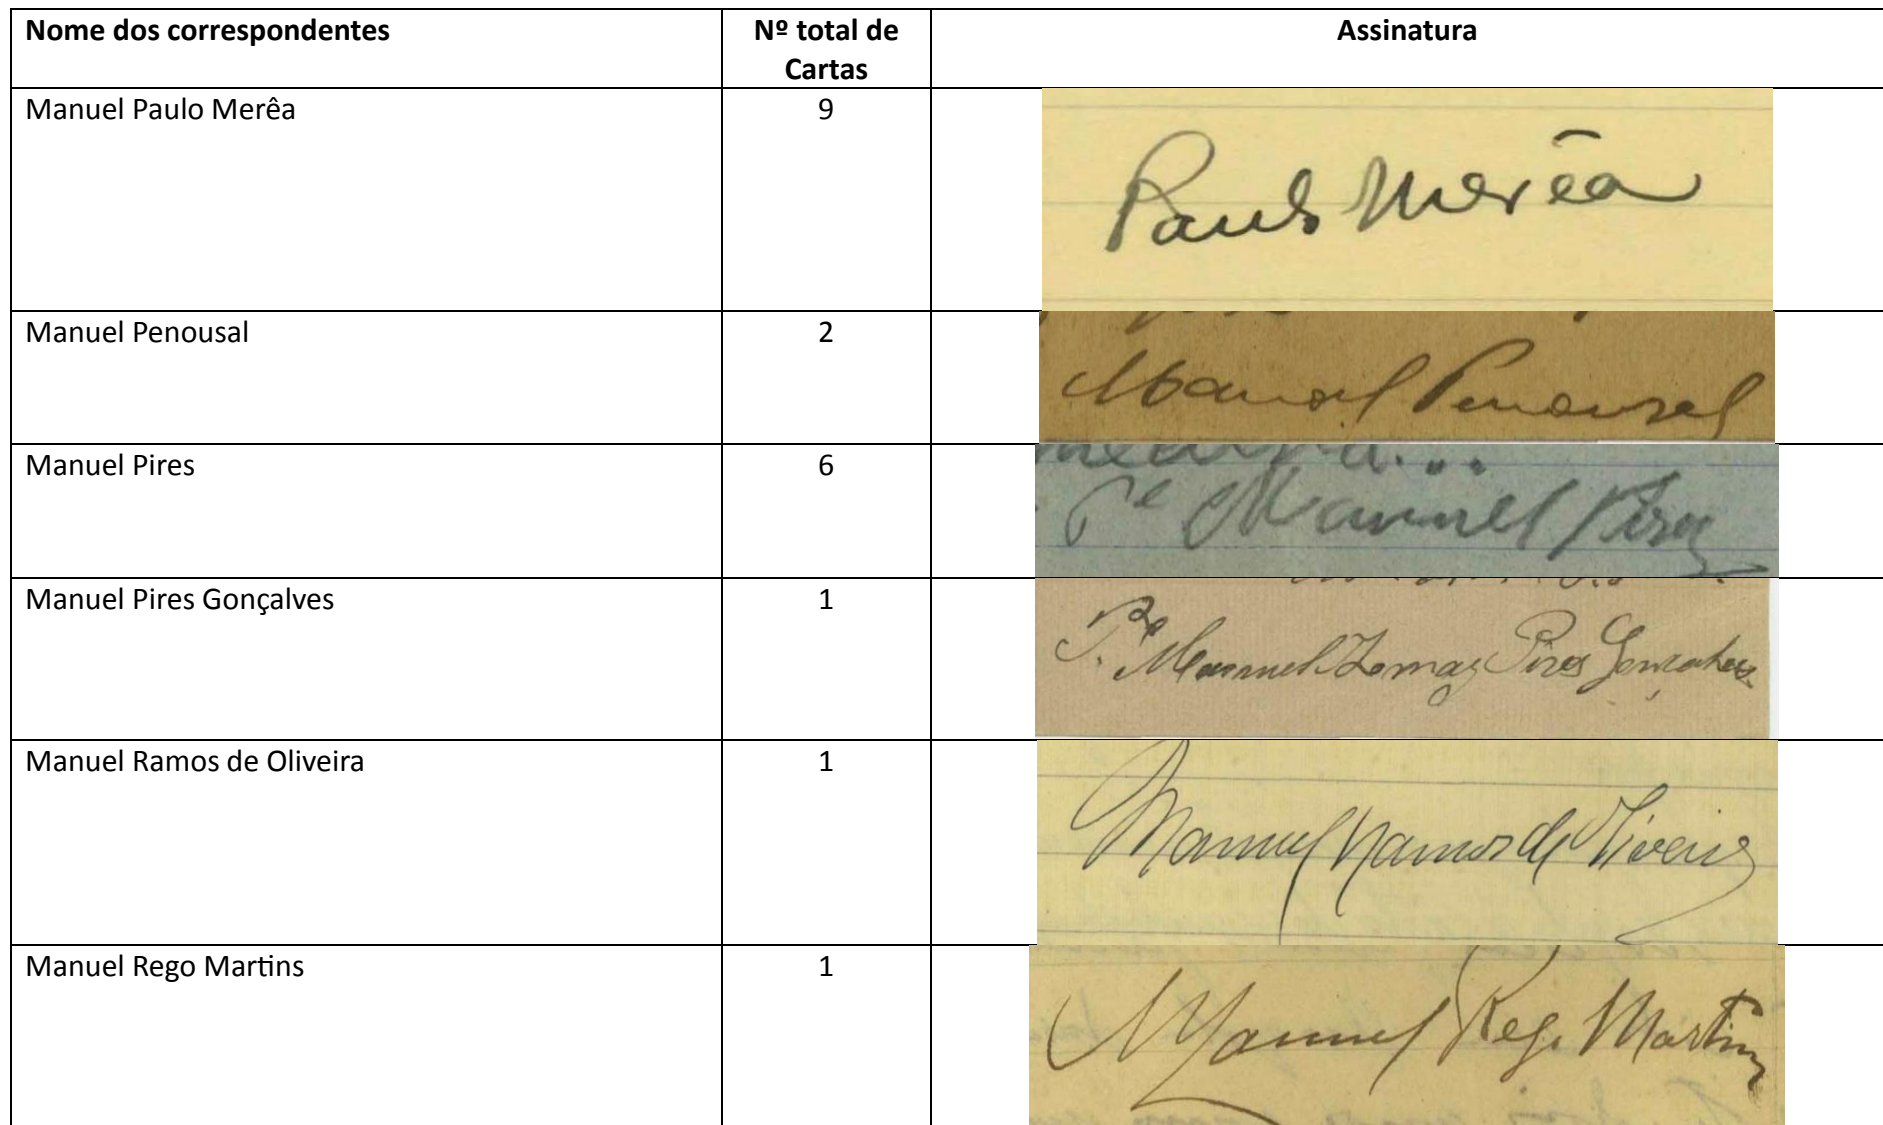 Nome dos correspondentes
Nº total de Cartas
Assinatura
Manuel Paulo Merêa
9
Paulo Merêa
Manuel Penousal
2
Manuel Penousal
Manuel Pires
6
Pe Manuel Pires
Manuel Pires Gonçalves
1
P.e Manuel Tomaz Pires Gonçalves
Manuel Ramos de Oliveira
1
Manuel Ramos de Oliveira
Manuel Rego Martins
1
Manuel Rego Martins